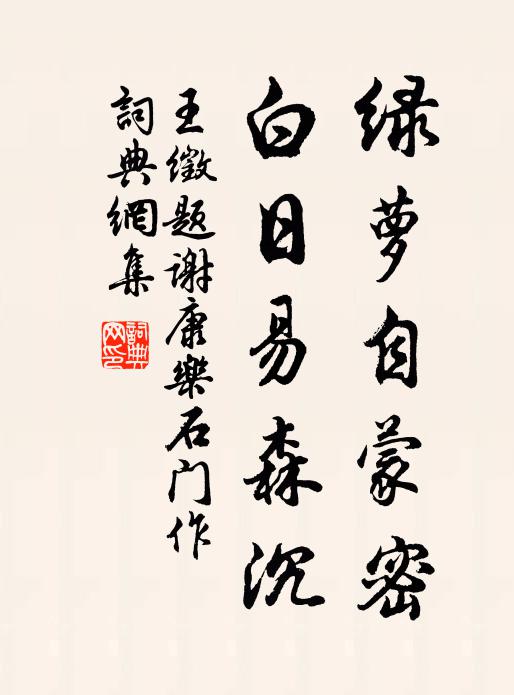 绿萝自蒙密
白日易森沉
王徽题谢康樂石门作
詞典網集
詞典
网印